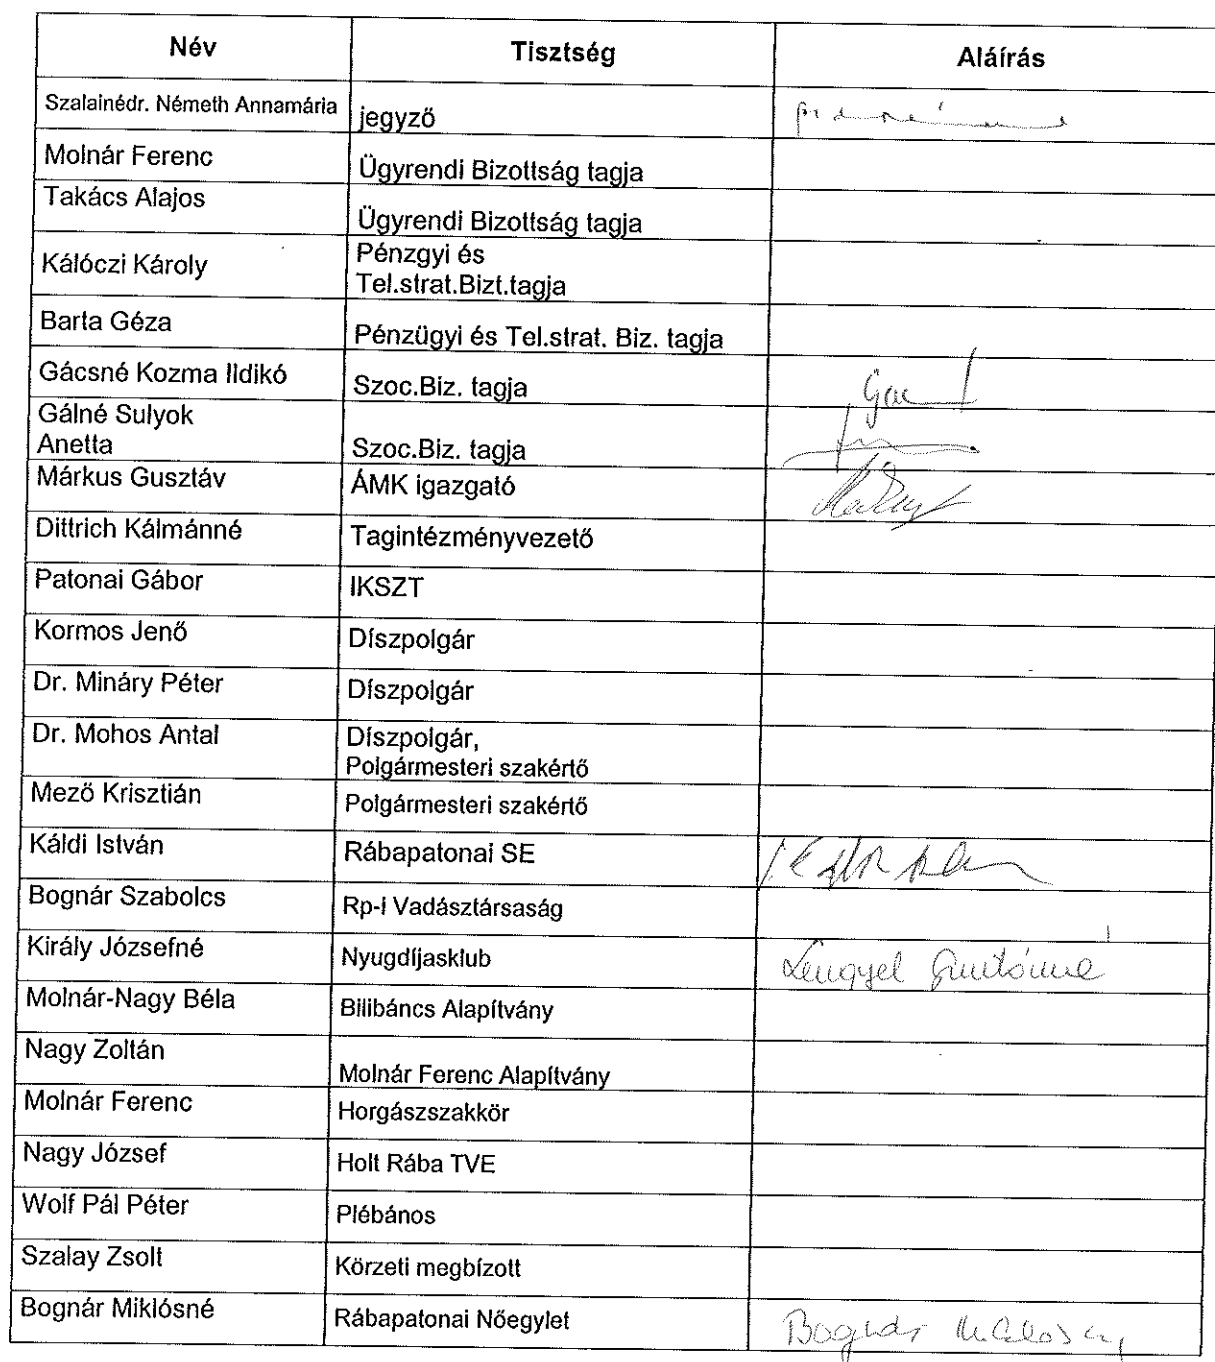 Név Tisztség Aláírás
Szalainédr. Németh Annamária jegyző
Molnár Ferenc Ügyrendi Bizottság tagja
Takács Alajos Ügyrendi Bizottság tagja
Kálóczi Károly Pénzgyi és
Tel.strat.Bizt.tagja
Barta Géza Pénzügyi és Tel.strat. Biz. tagja
Gácsné Kozma Ildikó Szoc.Biz. tagja
Gálné Sulyok
Anetta Szoc.Biz. tagja
Márkus Gusztáv ÁMK igazgató
Dittrich Kálmánné Tagintézményvezető
Patonai Gábor IKSZT
Kormos Jenő Díszpolgár
Dr. Mináry Péter Díszpolgár
Dr. Mohos Antal Díszpolgár,
Polgármesteri szakértő
Mező Krisztián Polgármesteri szakértő
Káldi István Rábapatonai SE
Bognár Szabolcs Rp-i Vadásztársaság
Király Józsefné Nyugdíjasklub Lengyel Antónné
Molnár-Nagy Béla Bilibáncs Alapítvány
Nagy Zoltán Molnár Ferenc Alapítvány
Molnár Ferenc Horgászszakkör
Nagy József Holt Rába TVE
Wolf Pál Péter Plébános
Szalay Zsolt Körzeti megbízott
Bognár Miklósné Rábapatonai Nőegylet Bognár Miklósné